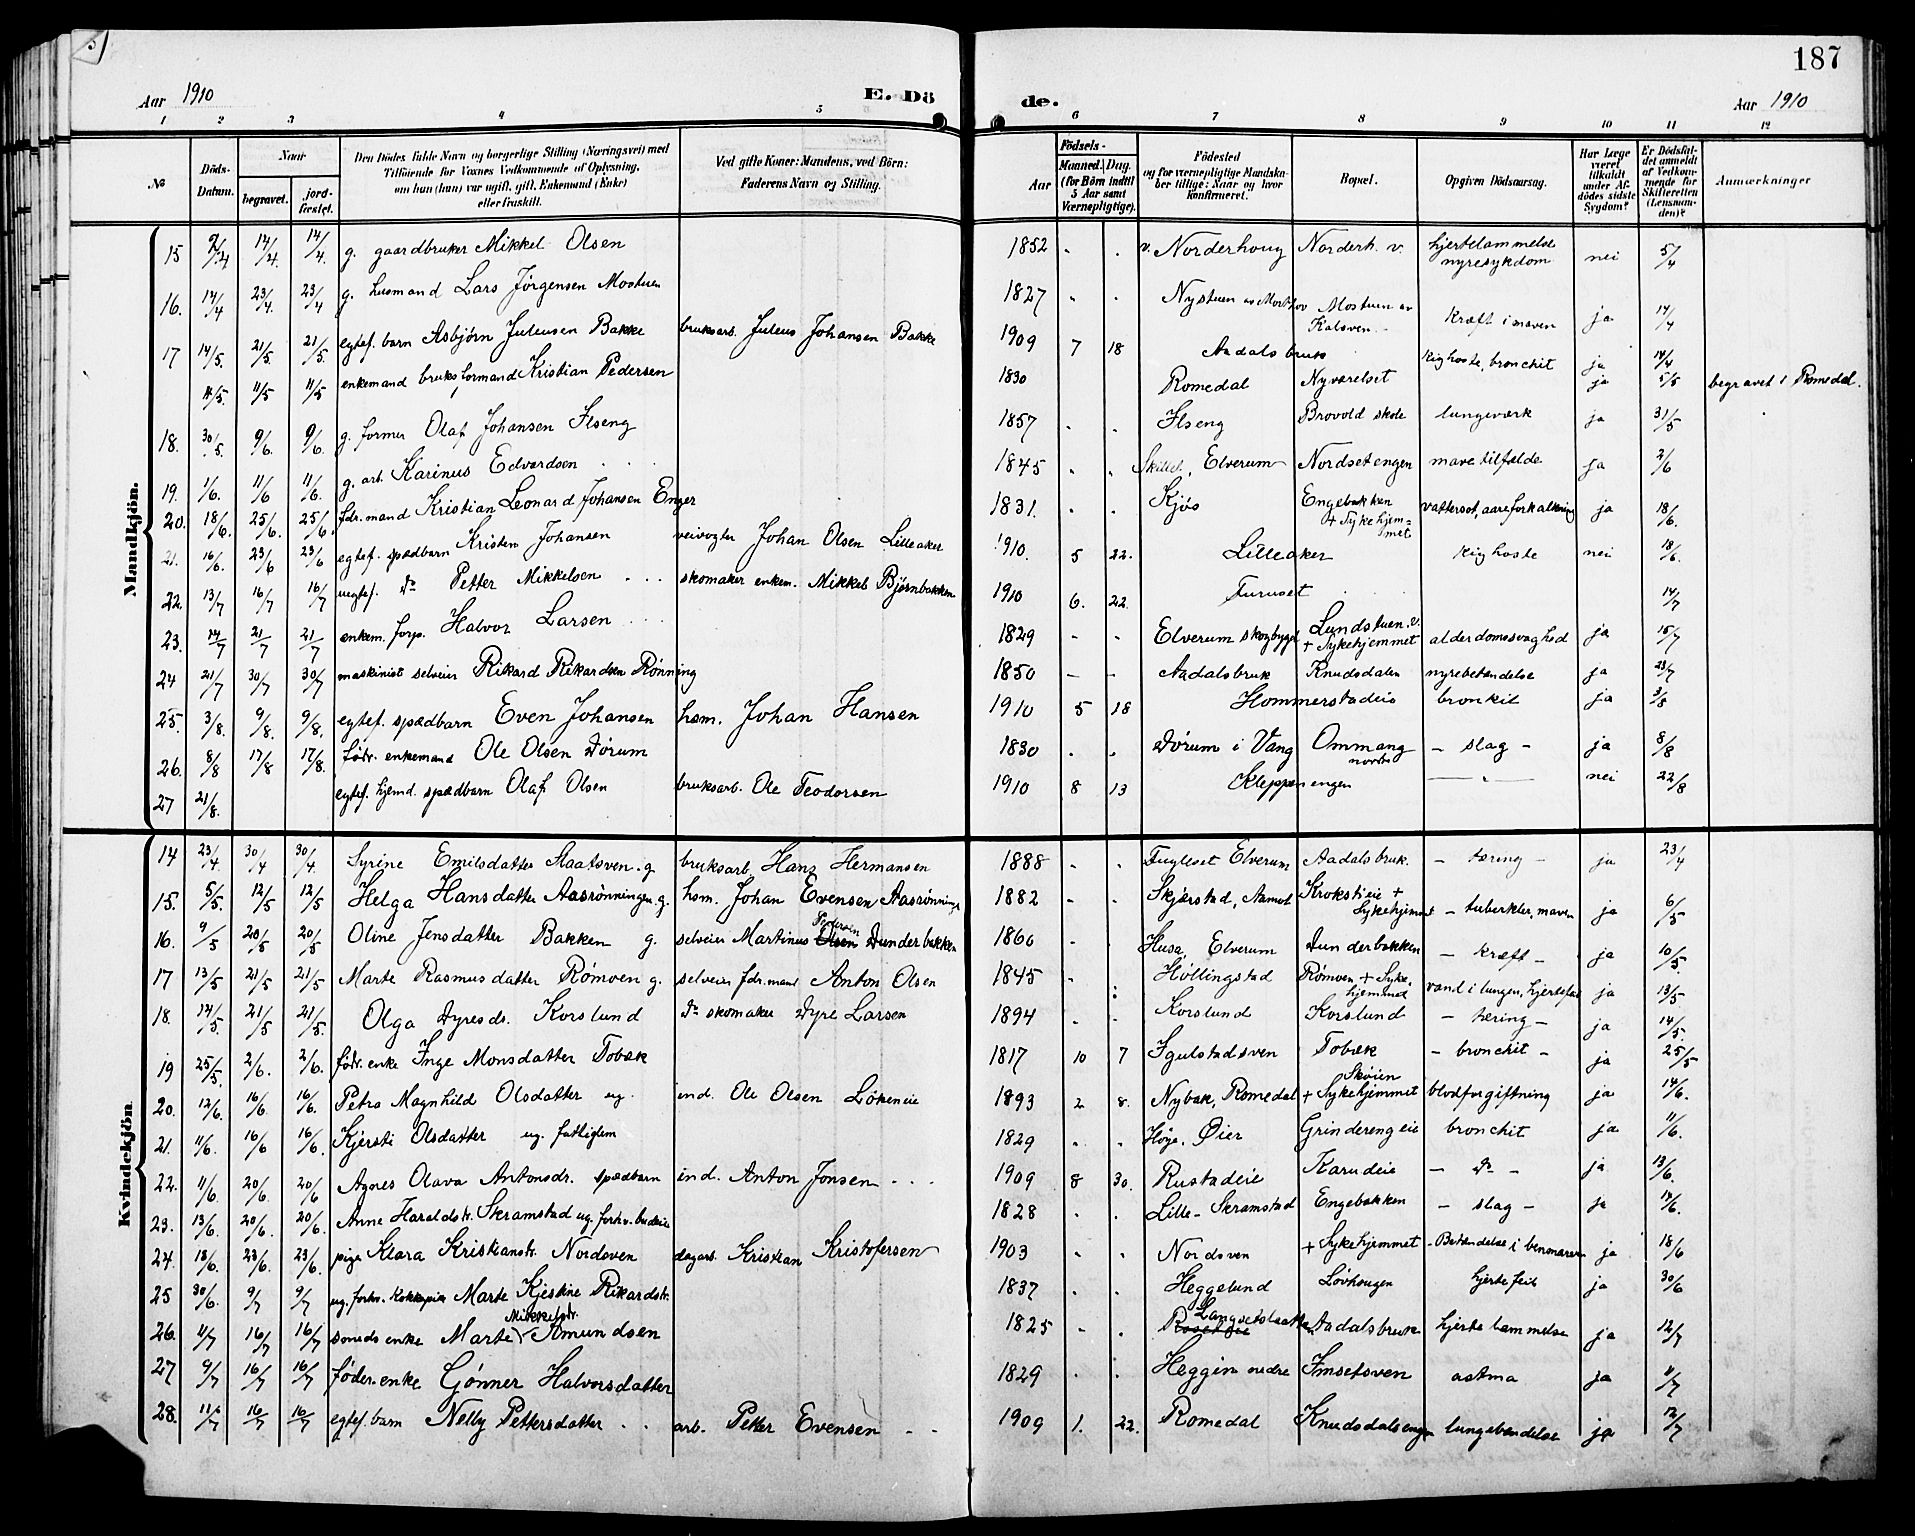 187
Aar 1910 E. Dö de. Aar 1910
1 2 3 4 5 6 7 8 9 10 11 12
No. Döds-Datum. Naar begravet. jord-fæstet. Den Dödes fulde Navn og borgerlige Stilling (Næringsvei) med Tilföiende for Voxnes Vedkommende af Oplysning, om han (hun) var ugift, gift, Enkemand (Enke) eller fraskilt. Ved gifte Koner: Mandens, ved Börn: Faderens Navn og Stilling. Födsels- Aar Maaned. Dag. (for Börn indtil 5 Aar samt Værnepligtige). Födested og for værnepligtige Mandskaber tillige: Naar og hvor konfirmeret. Bopæl. Opgiven Dödsaarsag. Har Læge været tilkaldt under Afdödes sidste Sygdom? Er Dödsfaldet anmeldt af Vedkommende for Skifteretten (Lensmanden)? Anmærkninger
Mandkjön.
15 2/4 14/4. 14/4. g. gaardbruker Mikkel Olsen 1852 - . v. Norderhoug Norderh. v. hjertelammelse nyresykdom nei 5/4
16. 14/4 23/4. 23/4 g. husmand Lars Jörgensen Mostuen 1827 - . Nystuen Mostuen av Kalsven kræft i maven ja 14/4
17 14/5. 21/5. 21/5. egtef. barn Asbjörn Juleusen Bakke bruksarb. Juleus Johansen Bakke 1909 7 18 Aadals bruk kighoste, bronchit ja 14/4
4/5. 11/5 11/5 enkemand bruksformand Kristian Pedersen 1830 Romedal Nyværelset ja 5/5 begravet i Romedal.
18. 30/5. 9/6. 9/6. g. former Olaf Johansen Ilseng 1857 . . Ilseng Brovold skole lungeværk ja 31/5
19. 1/6. 11/6 11/6. g. arb. Karinus Edvardsen 1845 . . Elverum Nordsetengen mavetilfælde ja 2/6
20. 18/6. 25/6. 25/6. fdr. mand Kristian Leonard Johansen Enger 1831. . . Kjös Engebakken + Sykehjemmet vattersot, aareforkalkning ja 18/6.
21. 16/6. 23/6 23/6 egtef. spædbarn Kristen Johansen veivogter Johan Olsen Lilleaker 1910. 5 22. Lilleaker kighoste nei 18/6.
22. 13/7 16/7 16/7 uegtef. do Petter Mikkelsen . . . skomaker enkem. Mikkel Björnbakken 1910 6. 22. Furuset 14/7
23. 14/7 21/7 21/7 enkem. forp. Halvor Larsen . . . 1829 - - Elverum skogbygd Lundstuen. v. + Sykehjemmet alderdomssvaghed ja 15/7
24 21/7 30/7 30/7 maskinist selveier Rikard Rikardsen Rönning 1850 - - Aadalsbruk Knudsdalen nyrebetændelse ja 23/7
25. 3/8. 9/8. 9/8. egtef. spædbarn Even Johansen hsm. Johan Hansen 1910 5 18 Hommerstadeie bronkit ja 3/8
26. 8/8 17/8 17/8. födr. enkemand Ole Olsen Dörum 1830 . . Dörum i Vang Ommang nordre - slag - ja 8/8
27 21/8. egtef. hjemd. spædbarn Olaf Olsen bruksarb. Ole Teodorsen 1910 8 13 Kleppenengen — " — nei 22/8
Kvindekjön
14 23/4 30/4 30/4. Syrine Emilsdatter Staatsven. g bruksarb. Hans Hermansen 1888 . . Fugleset Elverum Aadalsbruk. - tæring - ja 23/4
15. 5/5. 12/5 12/5 Helga Hansdatter Aasrönningen. g. hsm. Johan Evensen Aasrönningen 1882 . . Skjærstad, Aamot Krokstieie + Sykehjemmet - tuberkler, maven ja 6/5
16. 9/5 20/5 20/5 Oline Jensdatter Bakken g. selveier Martinus Olsen Dunderbakken 1860 . . Husa, Elverum Dunderbakken - kræft - ja 10/5
17 13/5 21/5 21/5 Marte Rasmusdatter Römoen g. selveier fdr. mand Anton Olsen 1845 . . Höllingstad Römoen + Sykehjemmet vand i lungen, hjertefeil ja 13/5
18. 14/5. 21/5 21/5. Olga Dyresdr. Korslund do skomaker Dyre Larsen 1894 . . Korslund Korslund - tæring - ja 14/5.
19 25/5. 2/6. 2/6. födr. enke Inge Monsdatter Tobæk 1817 10 7 Igulstadsven Tobæk - bronchit - ja 25/5
20. 12/6. 16/6. 16/6. Petra Magnhild Olsdatter ug. ind. Ole Olsen Lökeneie 1893 2 8. Nybak, Romedal Skoien + Sykehjemmet blodforgiftning ja 14/6.
21. 11/6. 16/6 16/6 Kjersti Olsdatter ug. fattiglem 1829 . . Höge. Öier Grinderengeie bronchit ja 11/6.
22. 11/6. 20/6. 20/6 Agnes Olava Antonsdr. spædbarn ind. Anton Jonsen . . . 1909 8 30. Rustadeie Karudeie - do - ja 13/6.
23. 13/6. 20/6. 20/6. Anne Haraldstr. Skramstad ug. forhv. budeie 1828 . . Lille-Skramstad Engebakken - slag - ja 14/6.
24. 18/6. 23/6. 23/6. pige Klara Kristianstr. Nordsven dagarb. Kristian Kristofersen 1903 . . Nordsven + Sykehjemmet - Betændelse i benmarven ja 18/6
25 30/6. 9/7 9/7 ug. forhv. Kokkepike Marte Kjestine Rikardstr. 1837 . . Heggelund Lövhaugen hjertefeil ja 30/6
26. 11/7 16/7 16/7 smeds enke Marte Mikkelsdr. Amundsen 1825 - . Langsetbakken Aadalsbruk hjertelammelse ja 12/7
27 9/7 16/7 16/7 föder. enke Gönner Halvorsdatter 1829 . . Heggen nedre Imsetsven astma ja 11/7
28. 11/7 16/7 16/7 egtef. barn Nelly Pettersdatter . . arb. Petter Evensen . . 1909 1. 22. Romedal Knudsdalsengen lungebendelse ja 12/7